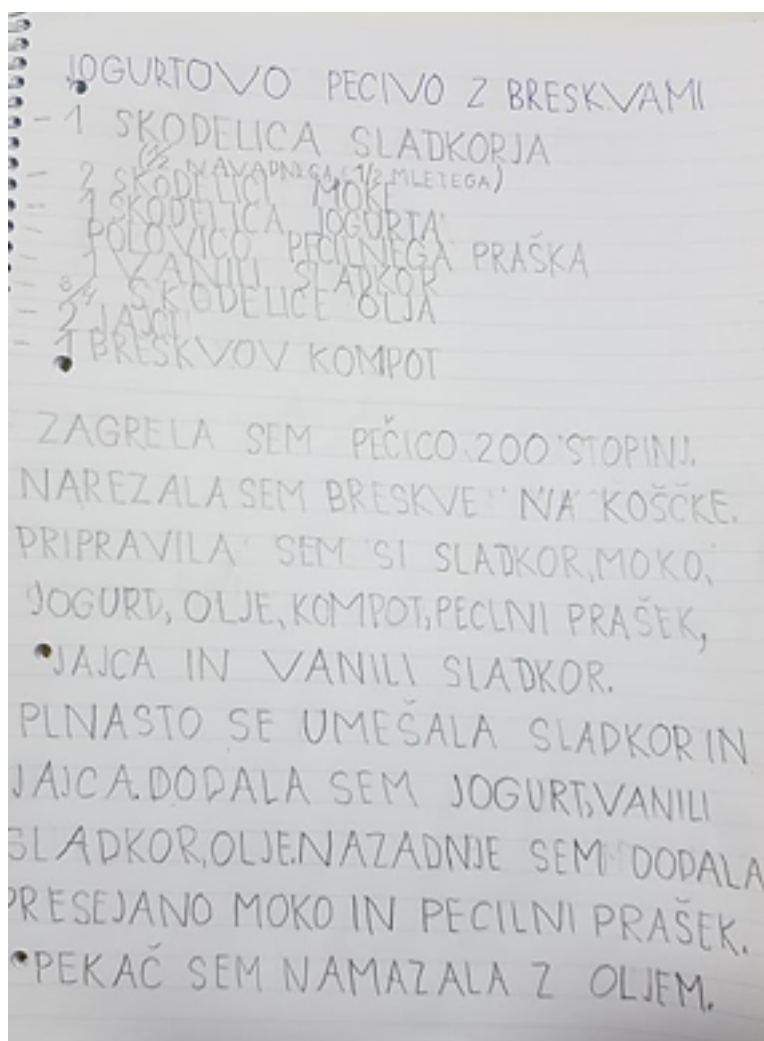 JOGURTOVO PECIVO Z BRESKVAMI
- 1 SKODELICA SLADKORJA
(1/2 NAVADNEGA, 1/2 MLETEGA)
- 2 SKODELICI MOKE
- 1 SKODELICA JOGURTA
POLOVICO PECILNEGA PRAŠKA
- 1 VANILI SLADKOR
3/4 SKODELICE OLJA
- 2 JAJCI
- 1 BRESKVOV KOMPOT
ZAGRELA SEM PEČICO 200 STOPINJ.
NAREZALA SEM BRESKVE NA KOŠČKE.
PRIPRAVILA SEM SI SLADKOR, MOKO,
JOGURD, OLJE, KOMPOT, PECLNI PRAŠEK,
JAJCA IN VANILI SLADKOR.
PLNASTO SE UMEŠALA SLADKOR IN
JAJCA. DODALA SEM JOGURT, VANILI
SLADKOR, OLJE. NAZADNJE SEM DODALA
PRESEJANO MOKO IN PECILNI PRAŠEK.
PEKAČ SEM NAMAZALA Z OLJEM.